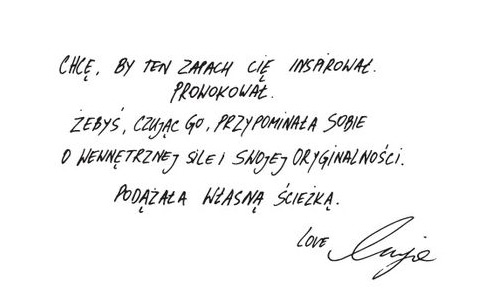 CHCĘ, BY TEN ZAPACH CIĘ INSPIROWAŁ.
PROWOKOWAŁ.
ŻEBYŚ, CZUJĄC GO, PRZYPOMINAŁA SOBIE
O WEWNĘTRZNEJ SILE I SWOJEJ ORYGINALNOŚCI.
PODĄŻAŁA WŁASNĄ ŚCIEŻKĄ.
LOVE